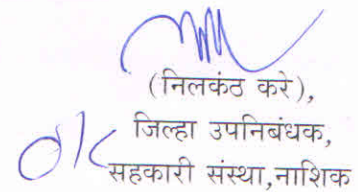 (निलकंठ करे),
जिल्हा उपनिबंधक,
O/c सहकारी संस्था,नाशिक